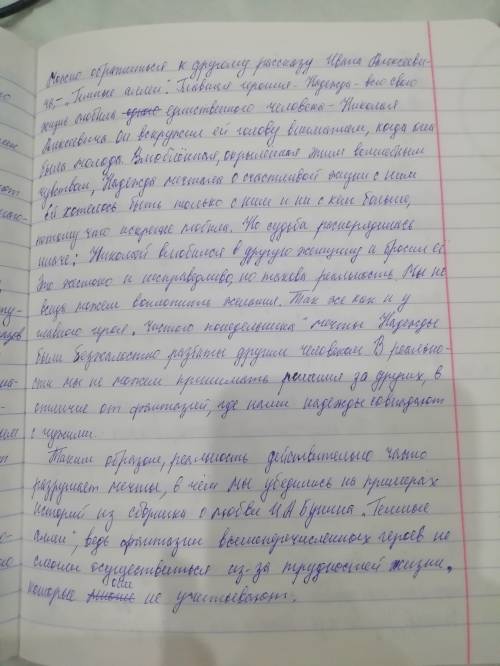 Можно обратиться к другому рассказу Ивана Алексееви-
ча,- „Темные аллеи". Главная героиня - Надежда - всю свою
жизнь любила единственного человека - Николая
Алексеевича. Он вскружил ей голову вниманием, когда она
была молода. Влюблённая, окрыленная этим волшебным
чувством, Надежда мечтала о счастливой жизни с ним
Ей хотелось быть только с ним и ни с кем больше,
потому что искренне любила. Но судьба распорядилась
иначе: Николай влюбился в другую женщину и бросил её.
Это жестоко и несправедливо, но такова реальность. Мы не
всегда можем воплотить желания. Так же как и у
главного героя „Чистого понедельника" мечты Надежды
были безжалостно разбиты другим человеком. В реально-
сти мы не можем принимать решения за других, в
отличие от фантазий, где наши надежды совпадают
с чужими.
Таким образом, реальность действительно часто
разрушает мечты, в чём мы убедились на примерах
историй из сборника о любви И.А.Бунина „Темные
аллеи", ведь фантазии вышеперечисленных героев не
смогли осуществиться из-за трудностей жизни,
которые они не учитывают.